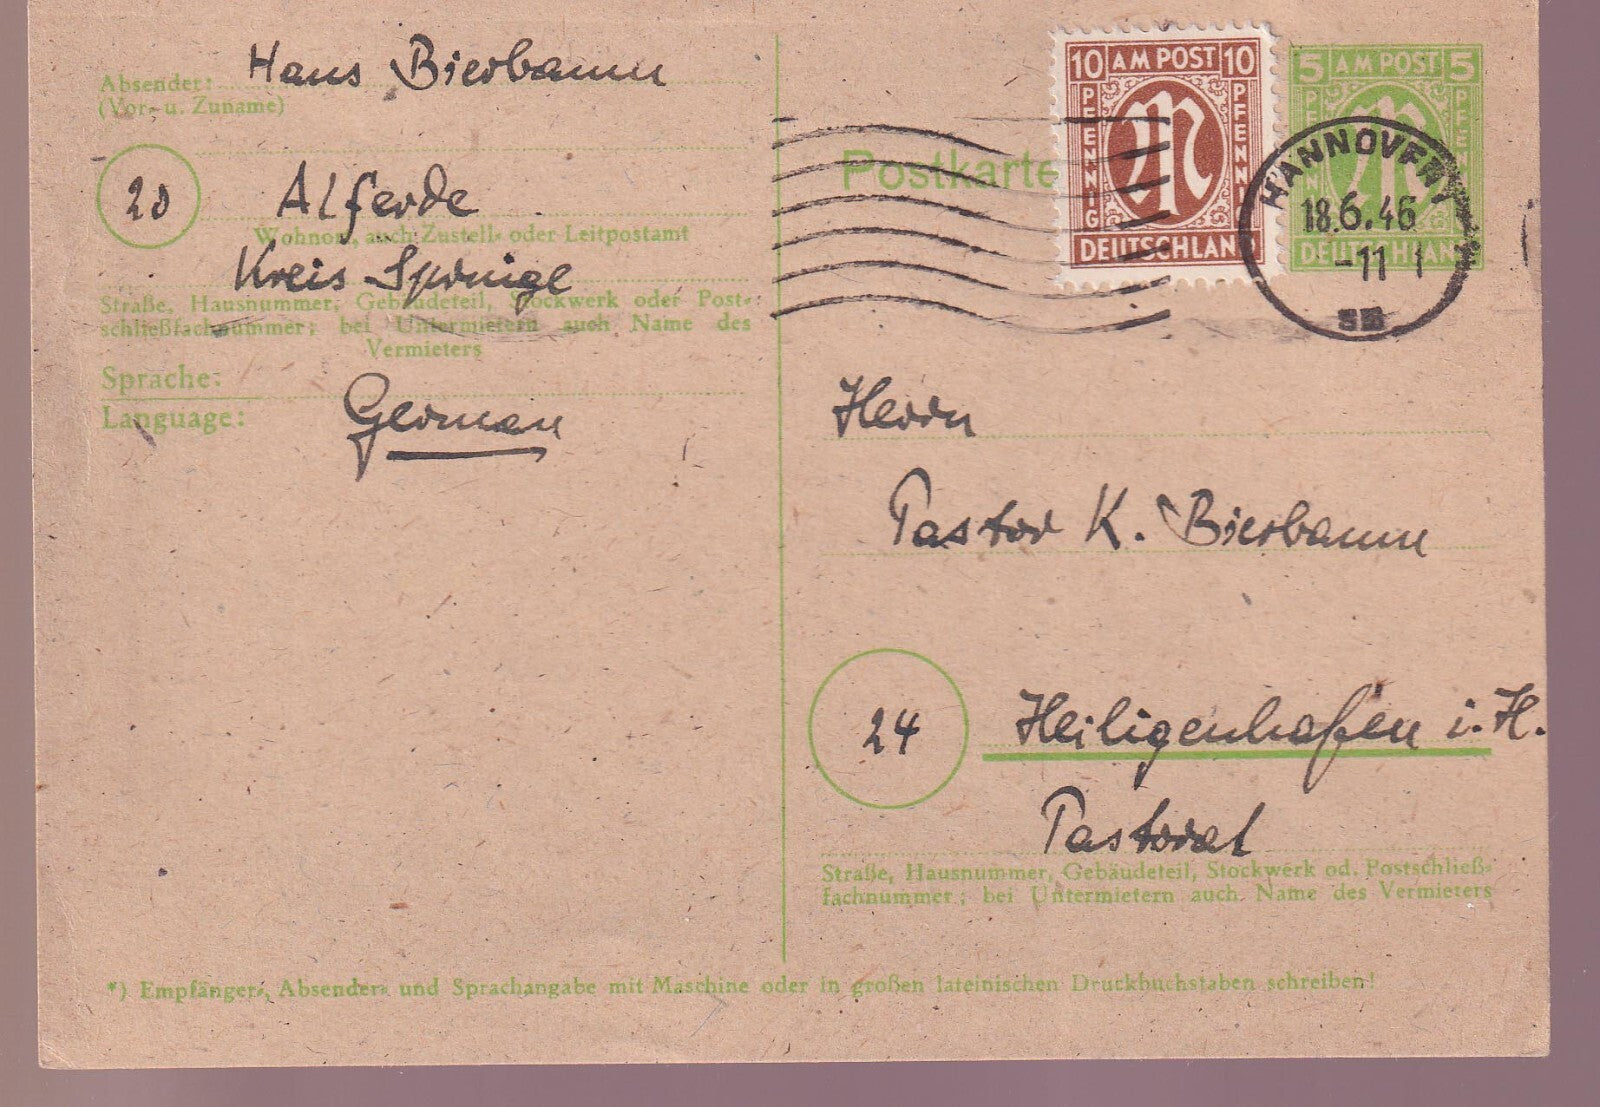 Absender: Hans Bierbaum
(Vor- u. Zuname)
20 Alferde
Wohnort, auch Zustell- oder Leitpostamt
Kreis Springe
Straße, Hausnummer, Gebäudeteil, Stockwerk oder Post-
schließfachnummer; bei Untermietern auch Name des
Vermieters
Sprache:
Language: German
Postkarte
10 AM POST 10
PFENNIG PFENNIG
DEUTSCHLAND
5 AM POST 5
PFENNIG PFENNIG
DEUTSCHLAND
HANNOVER
18.6.46
-11
Herrn
Pastor K. Bierbaum
24 Heiligenhafen i. H.
Pastorat
Straße, Hausnummer, Gebäudeteil, Stockwerk od. Postschließ-
fachnummer; bei Untermietern auch Name des Vermieters
*) Empfänger-, Absender- und Sprachangabe mit Maschine oder in großen lateinischen Druckbuchstaben schreiben!